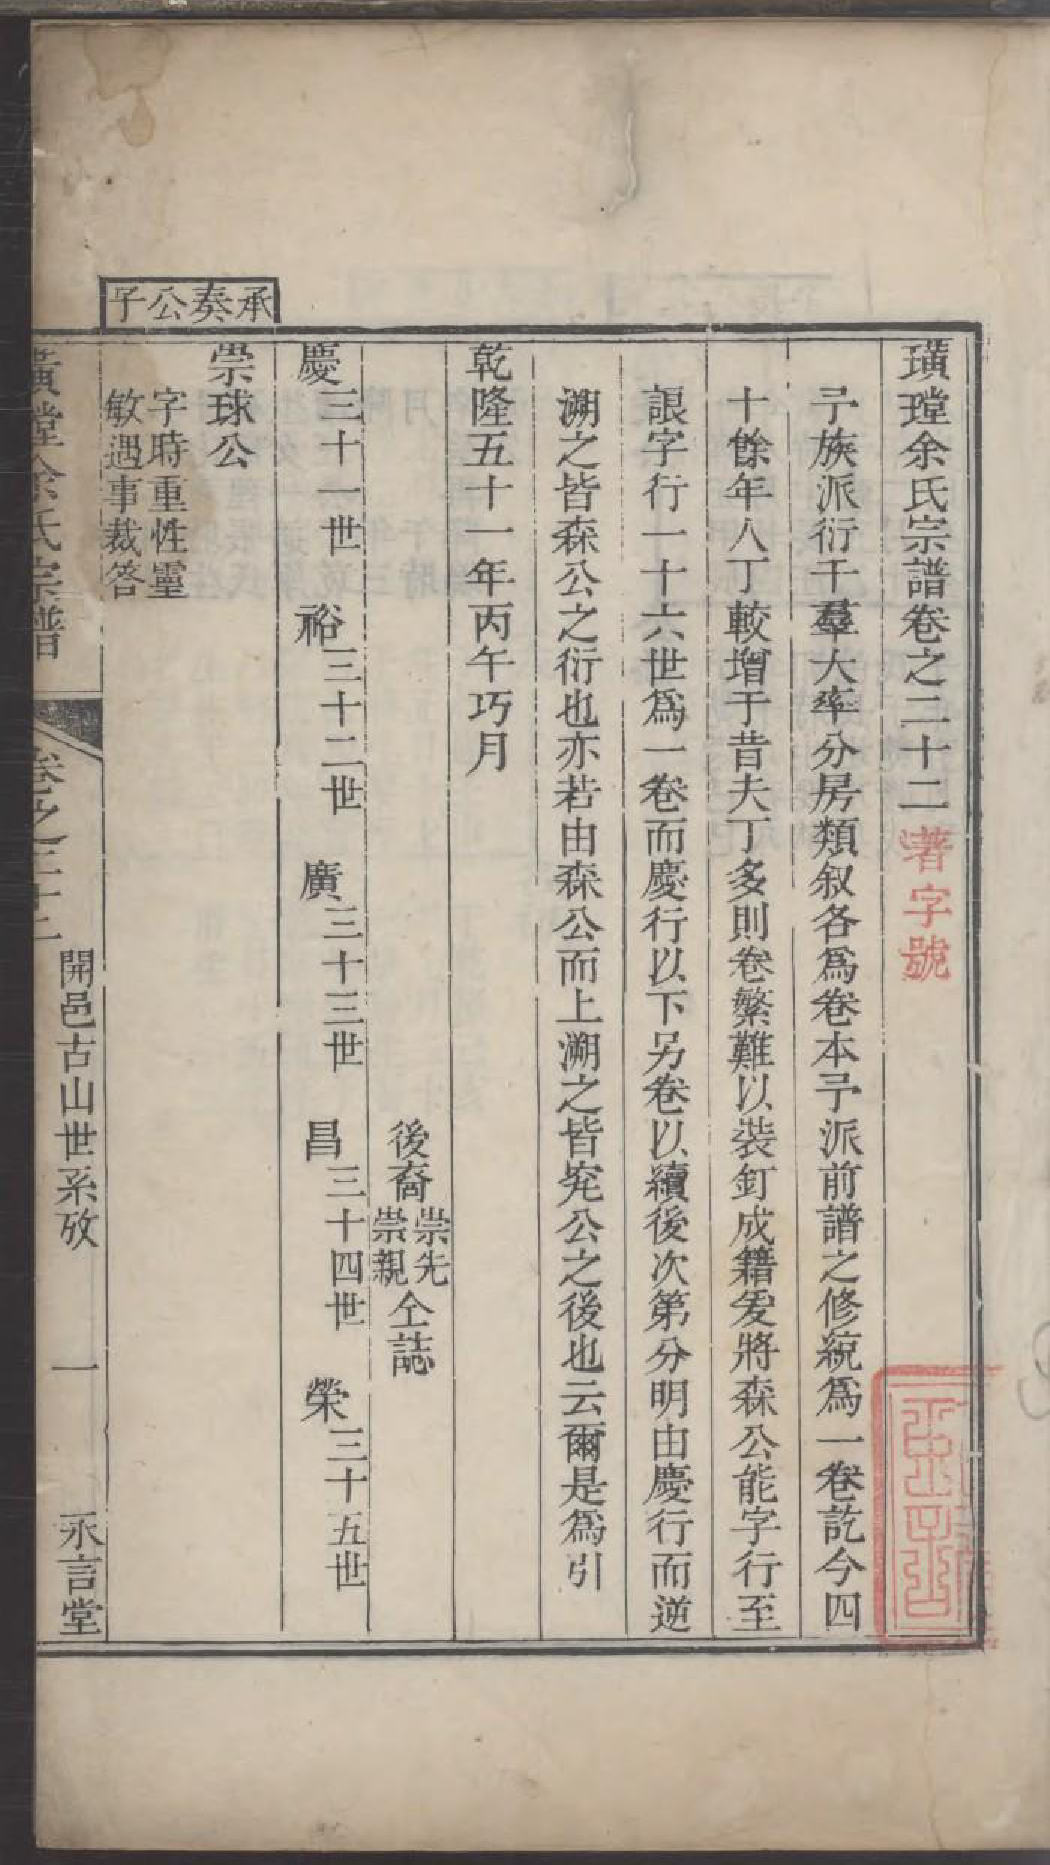 璜瑆余氏宗譜卷之二十二
著字號
予族派衍千羣大率分房類叙各爲卷本予派前譜之修統爲一卷訖今四
十餘年人丁較增于昔夫丁多則卷繁難以裝釘成籍爰將森公能字行至
詪字行一十六世爲一卷而慶行以下另卷以續後次第分明由慶行而逆
溯之皆森公之衍也亦若由森公而上溯之皆兖公之後也云爾是爲引
乾隆五十一年丙午巧月
後裔崇先崇親仝誌
慶三十一世 裕三十二世 廣三十三世 昌三十四世 榮三十五世
承奏公子
崇球公
字時重性靈
敏遇事裁答
璜瑆余氏宗譜 卷之二十二 開邑古山世系攷 一 永言堂